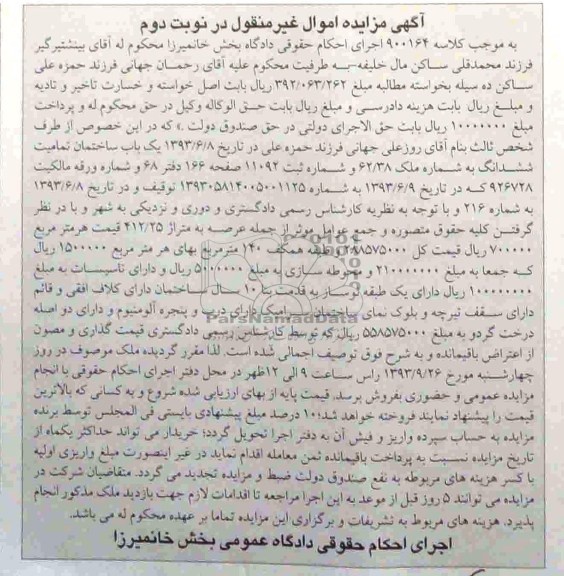 آگهی مزایده اموال غیرمنقول در نوبت دوم
به موجب کلاسه ۹۰۰۱۶۴ اجرای احکام حقوقی دادگاه بخش خانمیرزا محکوم له آقای بینشتیرگیر
فرزند محمدقلی ساکن مال خلیفه به طرفیت محکوم علیه آقای رحمان جهانی فرزند حمزه علی
ساکن ده سیله بخواسته مطالبه مبلغ ۳۹۲/۰۶۳/۲۶۲ ریال بابت اصل خواسته و خسارت تاخیر و تادیه
و مبلغ ریال بابت هزینه دادرسی و مبلغ ریال بابت حق الوکاله وکیل در حق محکوم له و پرداخت
مبلغ ۱۰۰۰۰۰۰۰ ریال بابت حق الاجرای دولتی در حق صندوق دولت .» که در این خصوص از طرف
شخص ثالث بنام آقای روزعلی جهانی فرزند حمزه علی در تاریخ ۱۳۹۳/۶/۸ یک باب ساختمان تمامیت
ششدانگ به شماره ملک ۶۲/۳۸ و شماره ثبت ۱۱۰۹۲ صفحه ۱۶۶ دفتر ۶۸ و شماره ورقه مالکیت
۹۲۶۷۲۸ که در تاریخ ۱۳۹۳/۶/۹ به شماره ۱۳۹۳۰۵۸۱۴۰۰۵۰۰۱۱۲۵ توقیف و در تاریخ ۱۳۹۳/۶/۸
به شماره ۲۱۶ و با توجه به نظریه کارشناس رسمی دادگستری و دوری و نزدیکی به شهر و با در نظر
گرفتن کلیه حقوق متصوره و جمع عوامل موثر از جمله عرصه به متراژ ۴۱۲/۲۵ قیمت هرمتر مربع
۷۰۰۰۰۰ ریال قیمت کل ۲۸۸۵۷۵۰۰۰ و طبقه همکف ۱۴۰ مترمربع بهای هر متر مربع ۱۵۰۰۰۰۰ ریال
که جمعا به مبلغ ۲۱۰۰۰۰۰۰۰ و محوطه سازی به مبلغ ۵۰۰۰۰۰۰۰ ریال و دارای تاسیسات به مبلغ
۱۰۰۰۰۰۰۰ ریال دارای یک طبقه نوساز به قدمت بنا ۱۰ سال ساختمان دارای کلاف افقی و قائم
دارای سقف تیرچه و بلوک نمای ساختمان سرامیک دارای درب و پنجره آلومنیوم و دارای دو اصله
درخت گردو به مبلغ ۵۵۸۵۷۵۰۰۰ ریال که توسط کارشناس رسمی دادگستری قیمت گذاری و مصون
از اعتراض باقیمانده و به شرح فوق توصیف اجمالی شده است. لذا مقرر گردیده ملک موصوف در روز
چهارشنبه مورخ ۱۳۹۳/۹/۲۶ راس ساعت ۹ الی ۱۲ظهر در محل دفتر اجرای احکام حقوقی با انجام
مزایده عمومی و حضوری بفروش برسد. قیمت پایه از بهای ارزیابی شده شروع و به کسانی که بالاترین
قیمت را پیشنهاد نمایند فروخته خواهد شد؛ ۱۰ درصد مبلغ پیشنهادی بایستی فی المجلس توسط برنده
مزایده به حساب سپرده واریز و فیش آن به دفتر اجرا تحویل گردد؛ خریدار می تواند حداکثر یکماه از
تاریخ مزایده نسبت به پرداخت باقیمانده ثمن معامله اقدام نماید در غیر اینصورت مبلغ واریزی اولیه
با کسر هزینه های مربوطه به نفع صندوق دولت ضبط و مزایده تجدید می گردد. متقاضیان شرکت در
مزایده می توانند ۵ روز قبل از موعد به این اجرا مراجعه تا اقدامات لازم جهت بازدید ملک مذکور انجام
پذیرد. هزینه های مربوط به تشریفات و برگزاری این مزایده تماما بر عهده محکوم له می باشد.
اجرای احکام حقوقی دادگاه عمومی بخش خانمیرزا
ParsNamadData